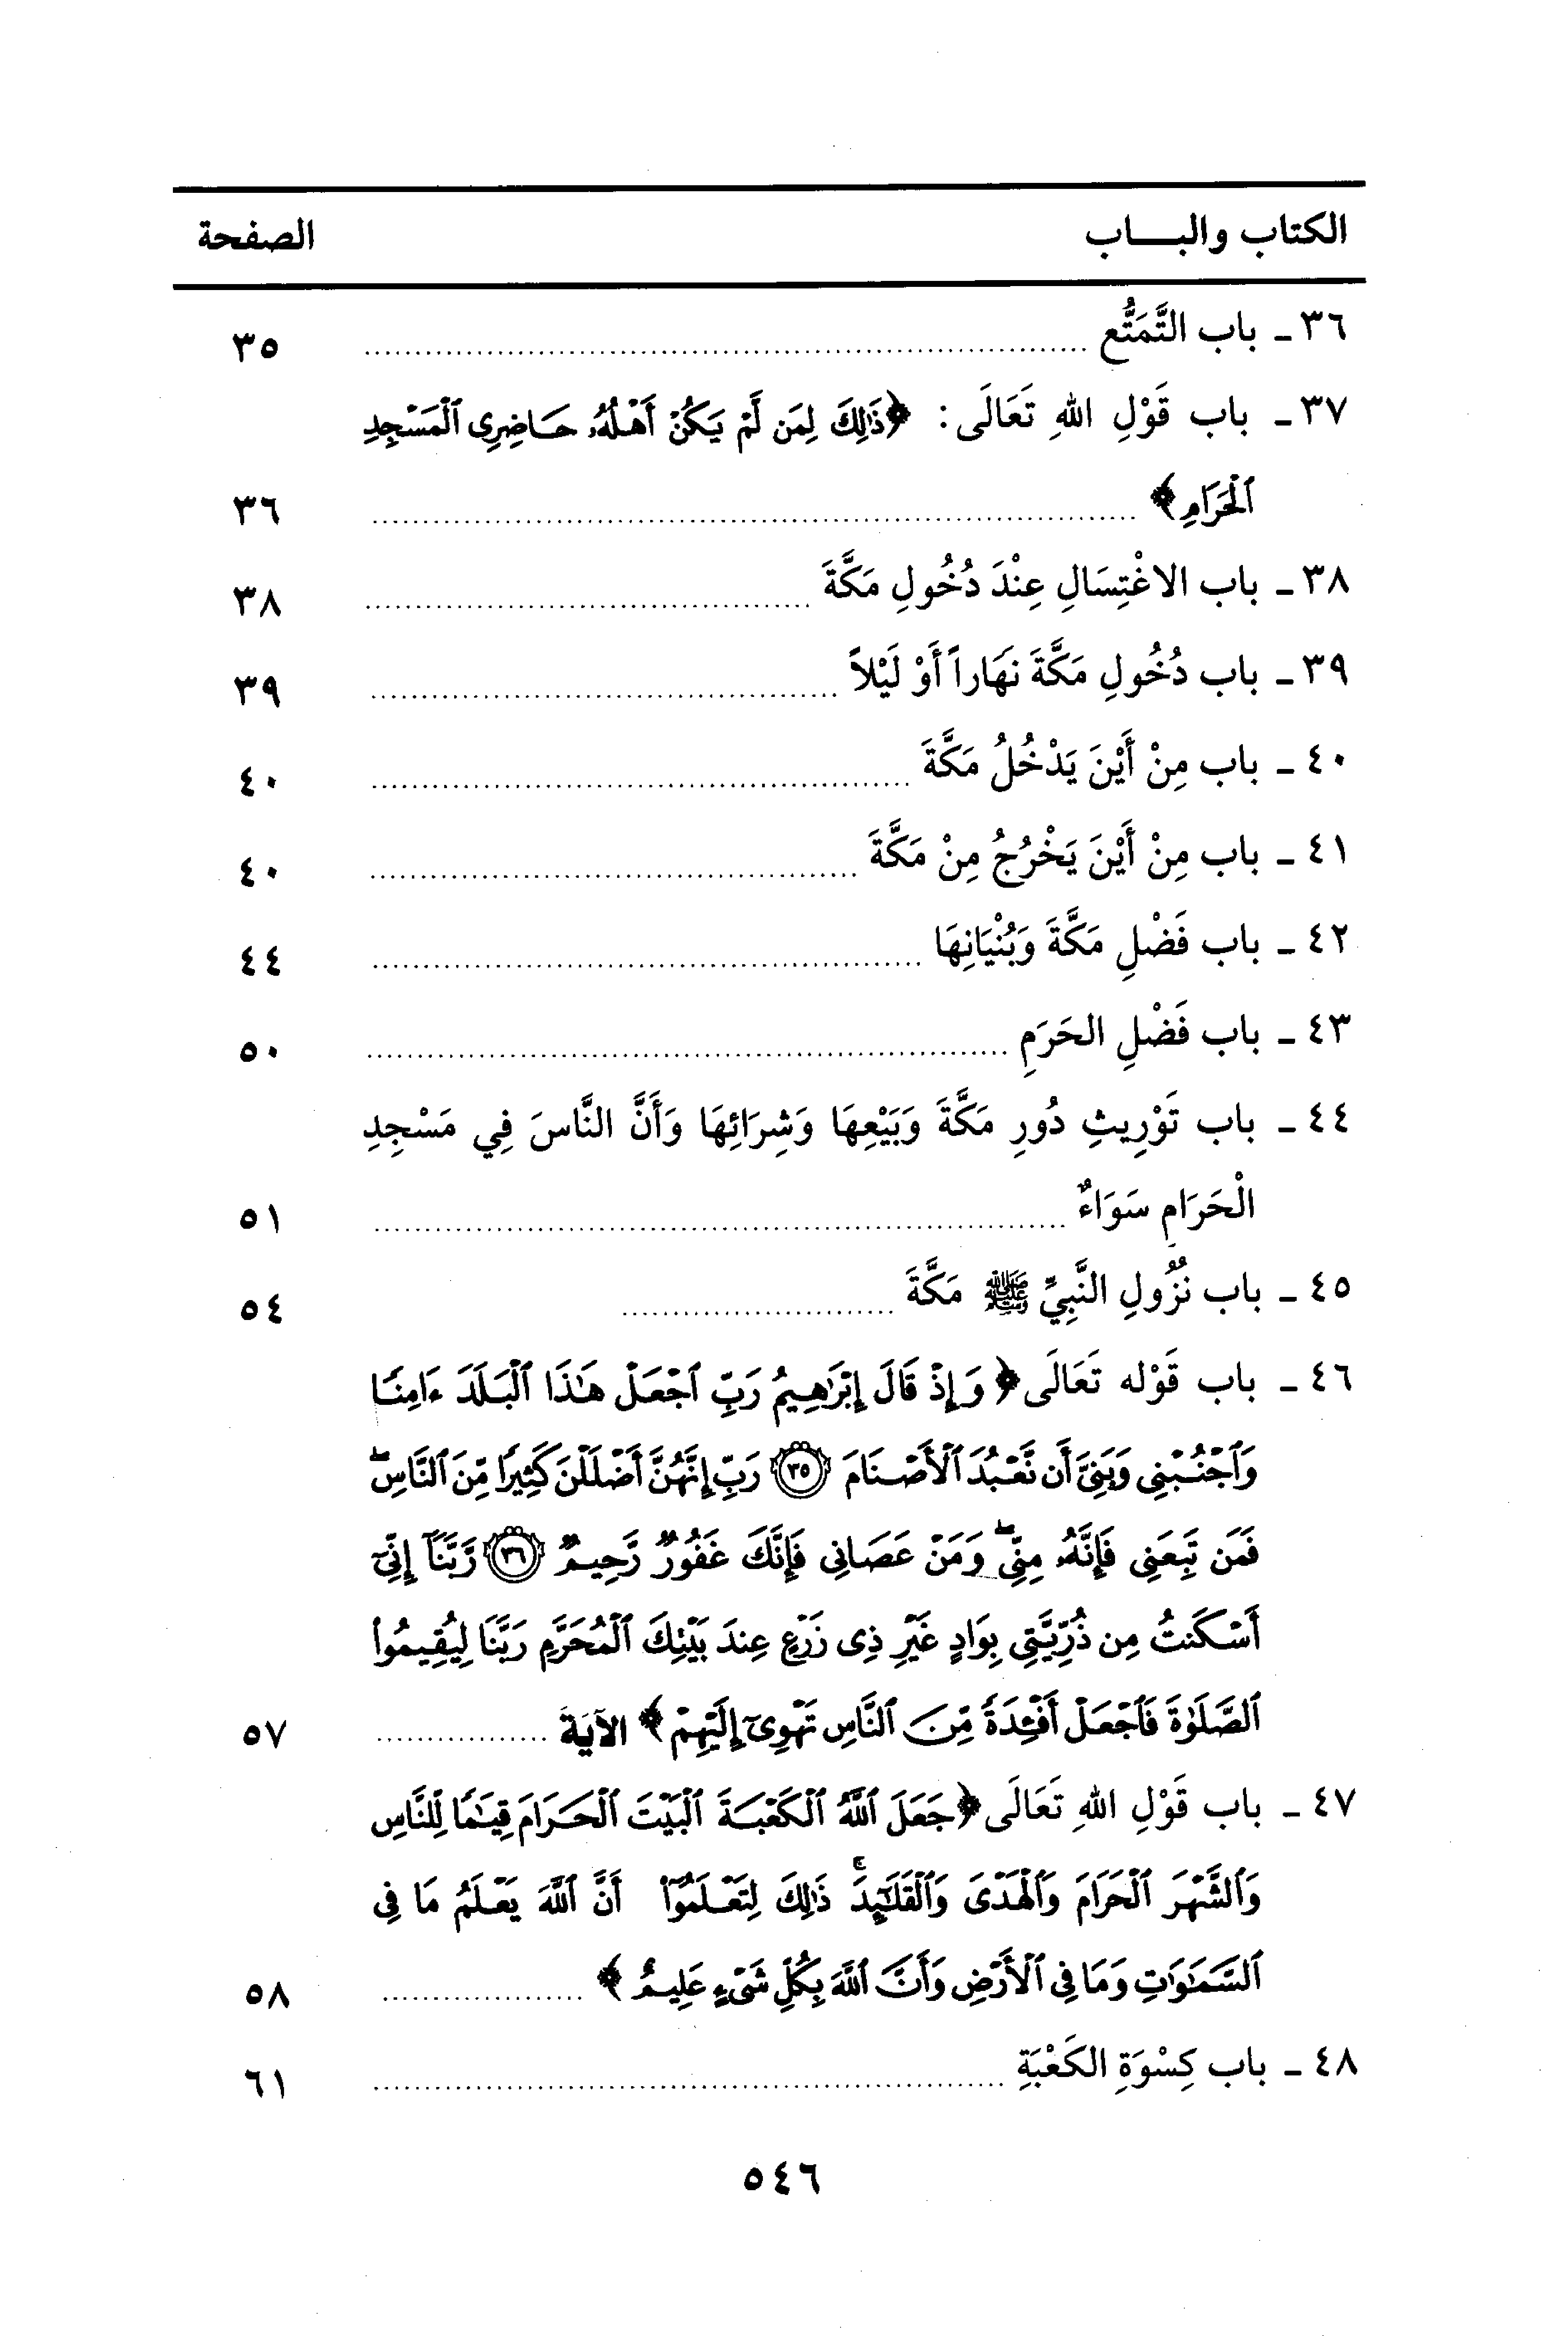 الكتاب والبـــاب الصفحة
٣٦ ـ باب التَّمَتُّع ........ ٣٥
٣٧ ـ باب قَوْلِ اللهِ تَعَالَى: ﴿ذَٰلِكَ لِمَن لَّمْ يَكُنْ أَهْلُهُۥ حَاضِرِى ٱلْمَسْجِدِ
ٱلْحَرَامِ﴾ ........ ٣٦
٣٨ ـ باب الاغْتِسَالِ عِنْدَ دُخُولِ مَكَّةَ ........ ٣٨
٣٩ ـ باب دُخُولِ مَكَّةَ نَهَاراً أَوْ لَيْلاً ........ ٣٩
٤٠ ـ باب مِنْ أَيْنَ يَدْخُلُ مَكَّةَ ........ ٤٠
٤١ ـ باب مِنْ أَيْنَ يَخْرُجُ مِنْ مَكَّةَ ........ ٤٠
٤٢ ـ باب فَضْلِ مَكَّةَ وَبُنْيَانِهَا ........ ٤٤
٤٣ ـ باب فَضْلِ الحَرَمِ ........ ٥٠
٤٤ ـ باب تَوْرِيثِ دُورِ مَكَّةَ وَبَيْعِهَا وَشِرَائِهَا وَأَنَّ النَّاسَ فِي مَسْجِدِ
الْحَرَامِ سَوَاءٌ ........ ٥١
٤٥ ـ باب نُزُولِ النَّبِيِّ ﷺ مَكَّةَ ........ ٥٤
٤٦ ـ باب قَوْله تَعَالَى ﴿وَإِذْ قَالَ إِبْرَٰهِيمُ رَبِّ ٱجْعَلْ هَٰذَا ٱلْبَلَدَ ءَامِنًا
وَٱجْنُبْنِى وَبَنِىَّ أَن نَّعْبُدَ ٱلْأَصْنَامَ ﴿٣٥﴾ رَبِّ إِنَّهُنَّ أَضْلَلْنَ كَثِيرًا مِّنَ ٱلنَّاسِ ۖ
فَمَن تَبِعَنِى فَإِنَّهُۥ مِنِّى ۖ وَمَنْ عَصَانِى فَإِنَّكَ غَفُورٌ رَّحِيمٌ ﴿٣٦﴾ رَّبَّنَآ إِنِّىٓ
أَسْكَنتُ مِن ذُرِّيَّتِى بِوَادٍ غَيْرِ ذِى زَرْعٍ عِندَ بَيْتِكَ ٱلْمُحَرَّمِ رَبَّنَا لِيُقِيمُوا۟
ٱلصَّلَوٰةَ فَٱجْعَلْ أَفْـِٔدَةً مِّنَ ٱلنَّاسِ تَهْوِىٓ إِلَيْهِمْ﴾ الآيَة ........ ٥٧
٤٧ ـ باب قَوْلِ اللهِ تَعَالَى ﴿جَعَلَ ٱللَّهُ ٱلْكَعْبَةَ ٱلْبَيْتَ ٱلْحَرَامَ قِيَٰمًا لِّلنَّاسِ
وَٱلشَّهْرَ ٱلْحَرَامَ وَٱلْهَدْىَ وَٱلْقَلَٰٓئِدَ ۚ ذَٰلِكَ لِتَعْلَمُوٓا۟ أَنَّ ٱللَّهَ يَعْلَمُ مَا فِى
ٱلسَّمَٰوَٰتِ وَمَا فِى ٱلْأَرْضِ وَأَنَّ ٱللَّهَ بِكُلِّ شَىْءٍ عَلِيمٌ﴾ ........ ٥٨
٤٨ ـ باب كِسْوَةِ الكَعْبَةِ ........ ٦١
٥٤٦